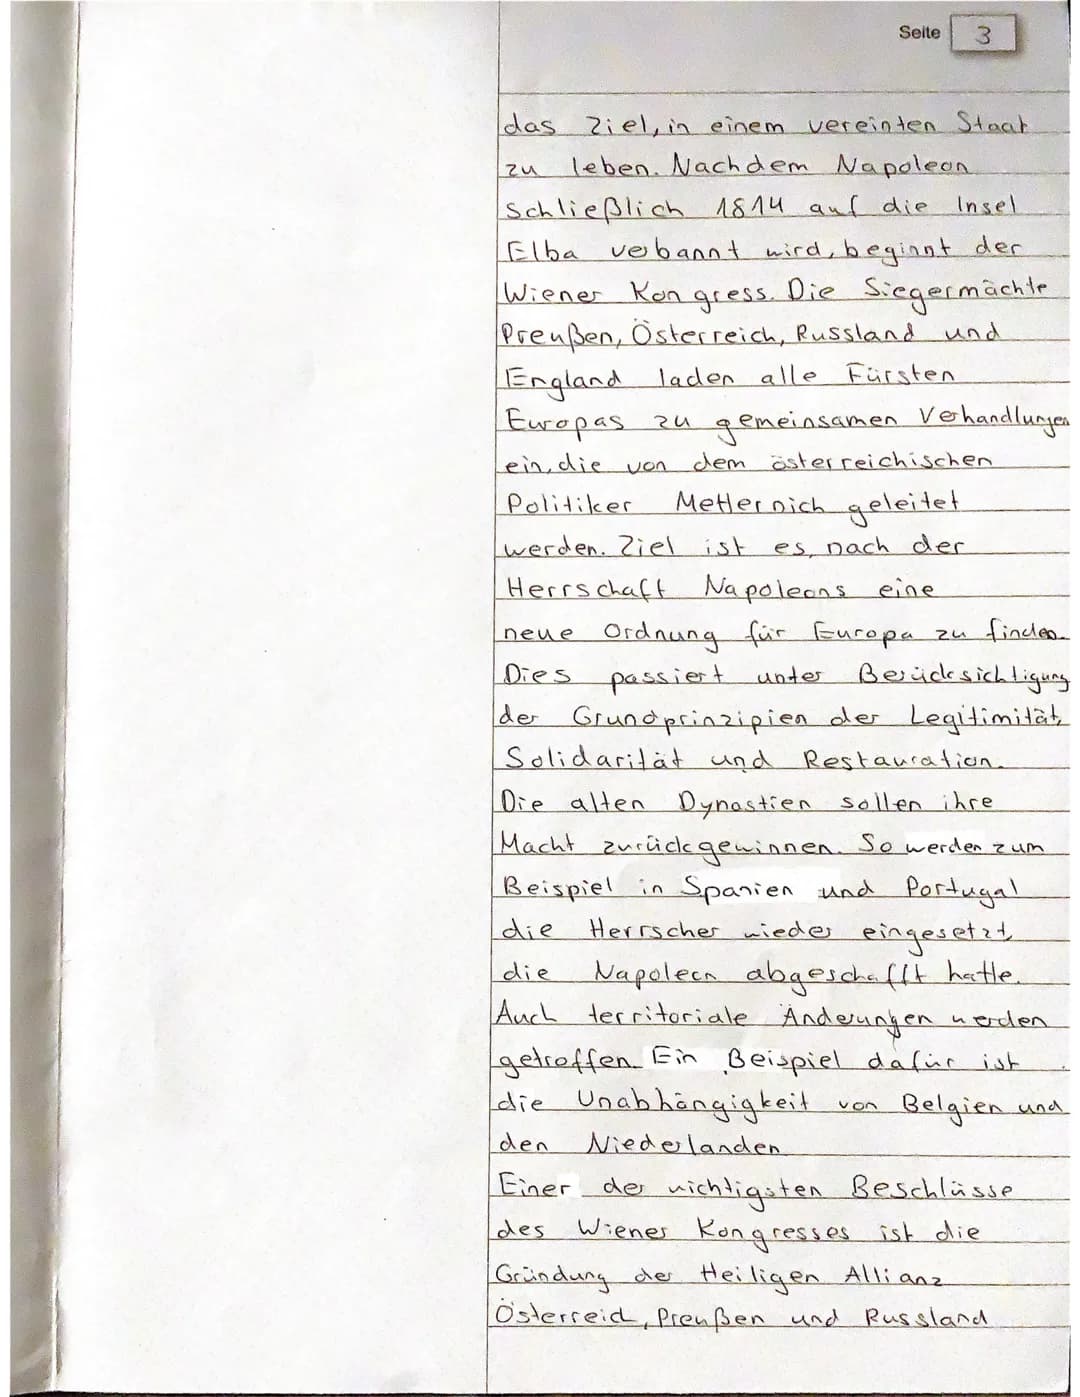 Seite 3
das Ziel, in einem vereinten Staat
zu leben. Nachdem Napoleon
schließlich 1814 auf die Insel
Elba verbannt wird, beginnt der
Wiener Kongress. Die Siegermächte
Preußen, Österreich, Russland und
England laden alle Fürsten
Europas zu gemeinsamen Verhandlungen
ein, die von dem österreichischen
Politiker Metternich geleitet
werden. Ziel ist es, nach der
Herrschaft Napoleons eine
neue Ordnung für Europa zu finden.
Dies passiert unter Berücksichtigung
der Grundprinzipien der Legitimität,
Solidarität und Restauration.
Die alten Dynastien sollen ihre
Macht zurückgewinnen. So werden zum
Beispiel in Spanien und Portugal
die Herrscher wieder eingesetzt,
die Napoleon abgeschafft hatte.
Auch territoriale Änderungen werden
getroffen. Ein Beispiel dafür ist
die Unabhängigkeit von Belgien und
den Niederlanden
Einer der wichtigsten Beschlüsse
des Wiener Kongresses ist die
Gründung der Heiligen Allianz
Österreich, Preußen und Russland